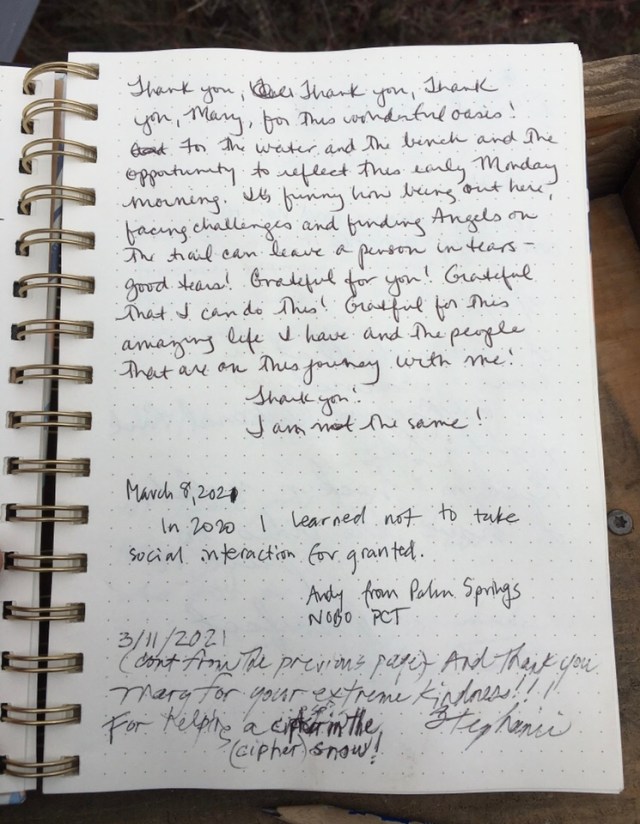 Thank you, Thank you, Thank
you, Mary, for this wonderful oasis!
for the water and the bench and the
opportunity to reflect this early Monday
morning. It's funny how being out here,
facing challenges and finding Angels on
the trail can leave a person in tears –
good tears! Grateful for you! Grateful
that I can do this! Grateful for this
amazing life I have and the people
that are on this journey with me!
Thank you!
I am not the same!
March 8, 2021
In 2020 I learned not to take
social interaction for granted.
Andy from Palm Springs
NOBO PCT
3/11/2021
(cont from the previous page) And Thank you
Mary for your extreme kindness!!!!
For helping a in the Stephanie
(cipher) snow!